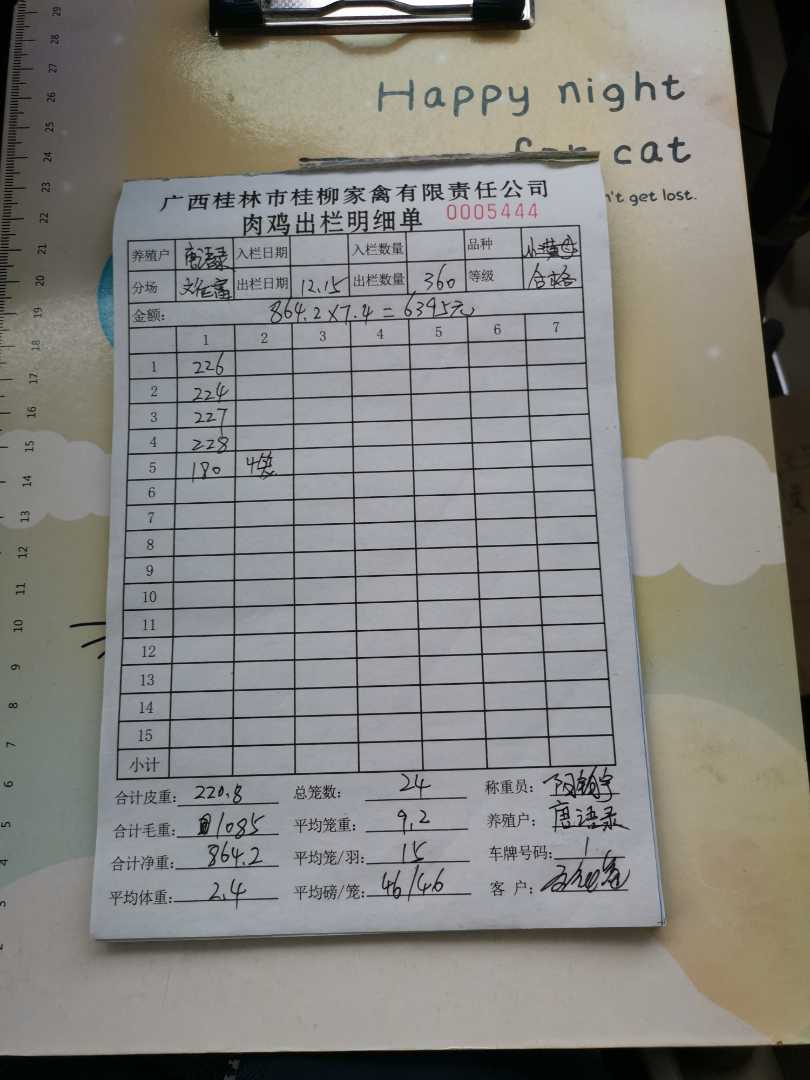 Happy night
for cat
n't get lost.
广西桂林市桂柳家禽有限责任公司
肉鸡出栏明细单 0005444
养殖户 唐语录 入栏日期 入栏数量 品种
分场 出栏日期 12.15 出栏数量 360 等级 合格
金额: 864.2×7.4=6395元
1 2 3 4 5 6 7
1 226
2 224
3 227
4 228
5 180 4袋
6
7
8
9
10
11
12
13
14
15
小计
合计皮重: 220.8 总笼数: 24 称重员:
合计毛重: 1085 平均笼重: 9.2 养殖户: 唐语录
合计净重: 864.2 平均笼/羽: 15 车牌号码: 1
平均体重: 2.4 平均磅/笼: 46/46 客 户:
29
28
27
26
25
24
23
22
21
20
19
18
17
16
15
14
13
12
11
10
9
8
7
6
5
4
3
2